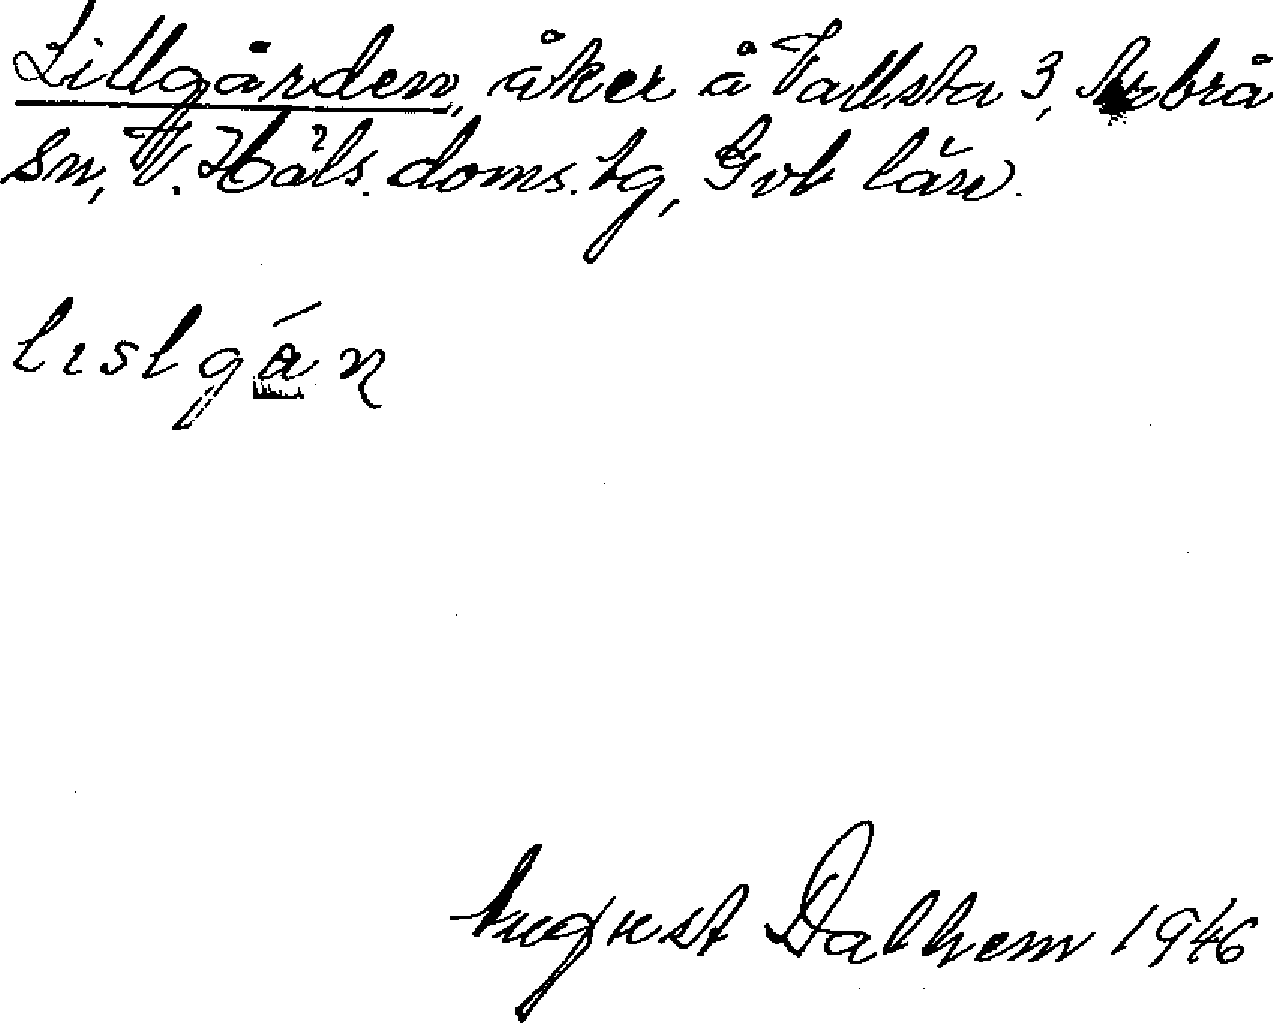 Lillgården, åker å Vallsta 3, Arbrå
sn, V. Häls. doms. tg, Gvb län.
lıslgáɳ
August Dalhem 1946